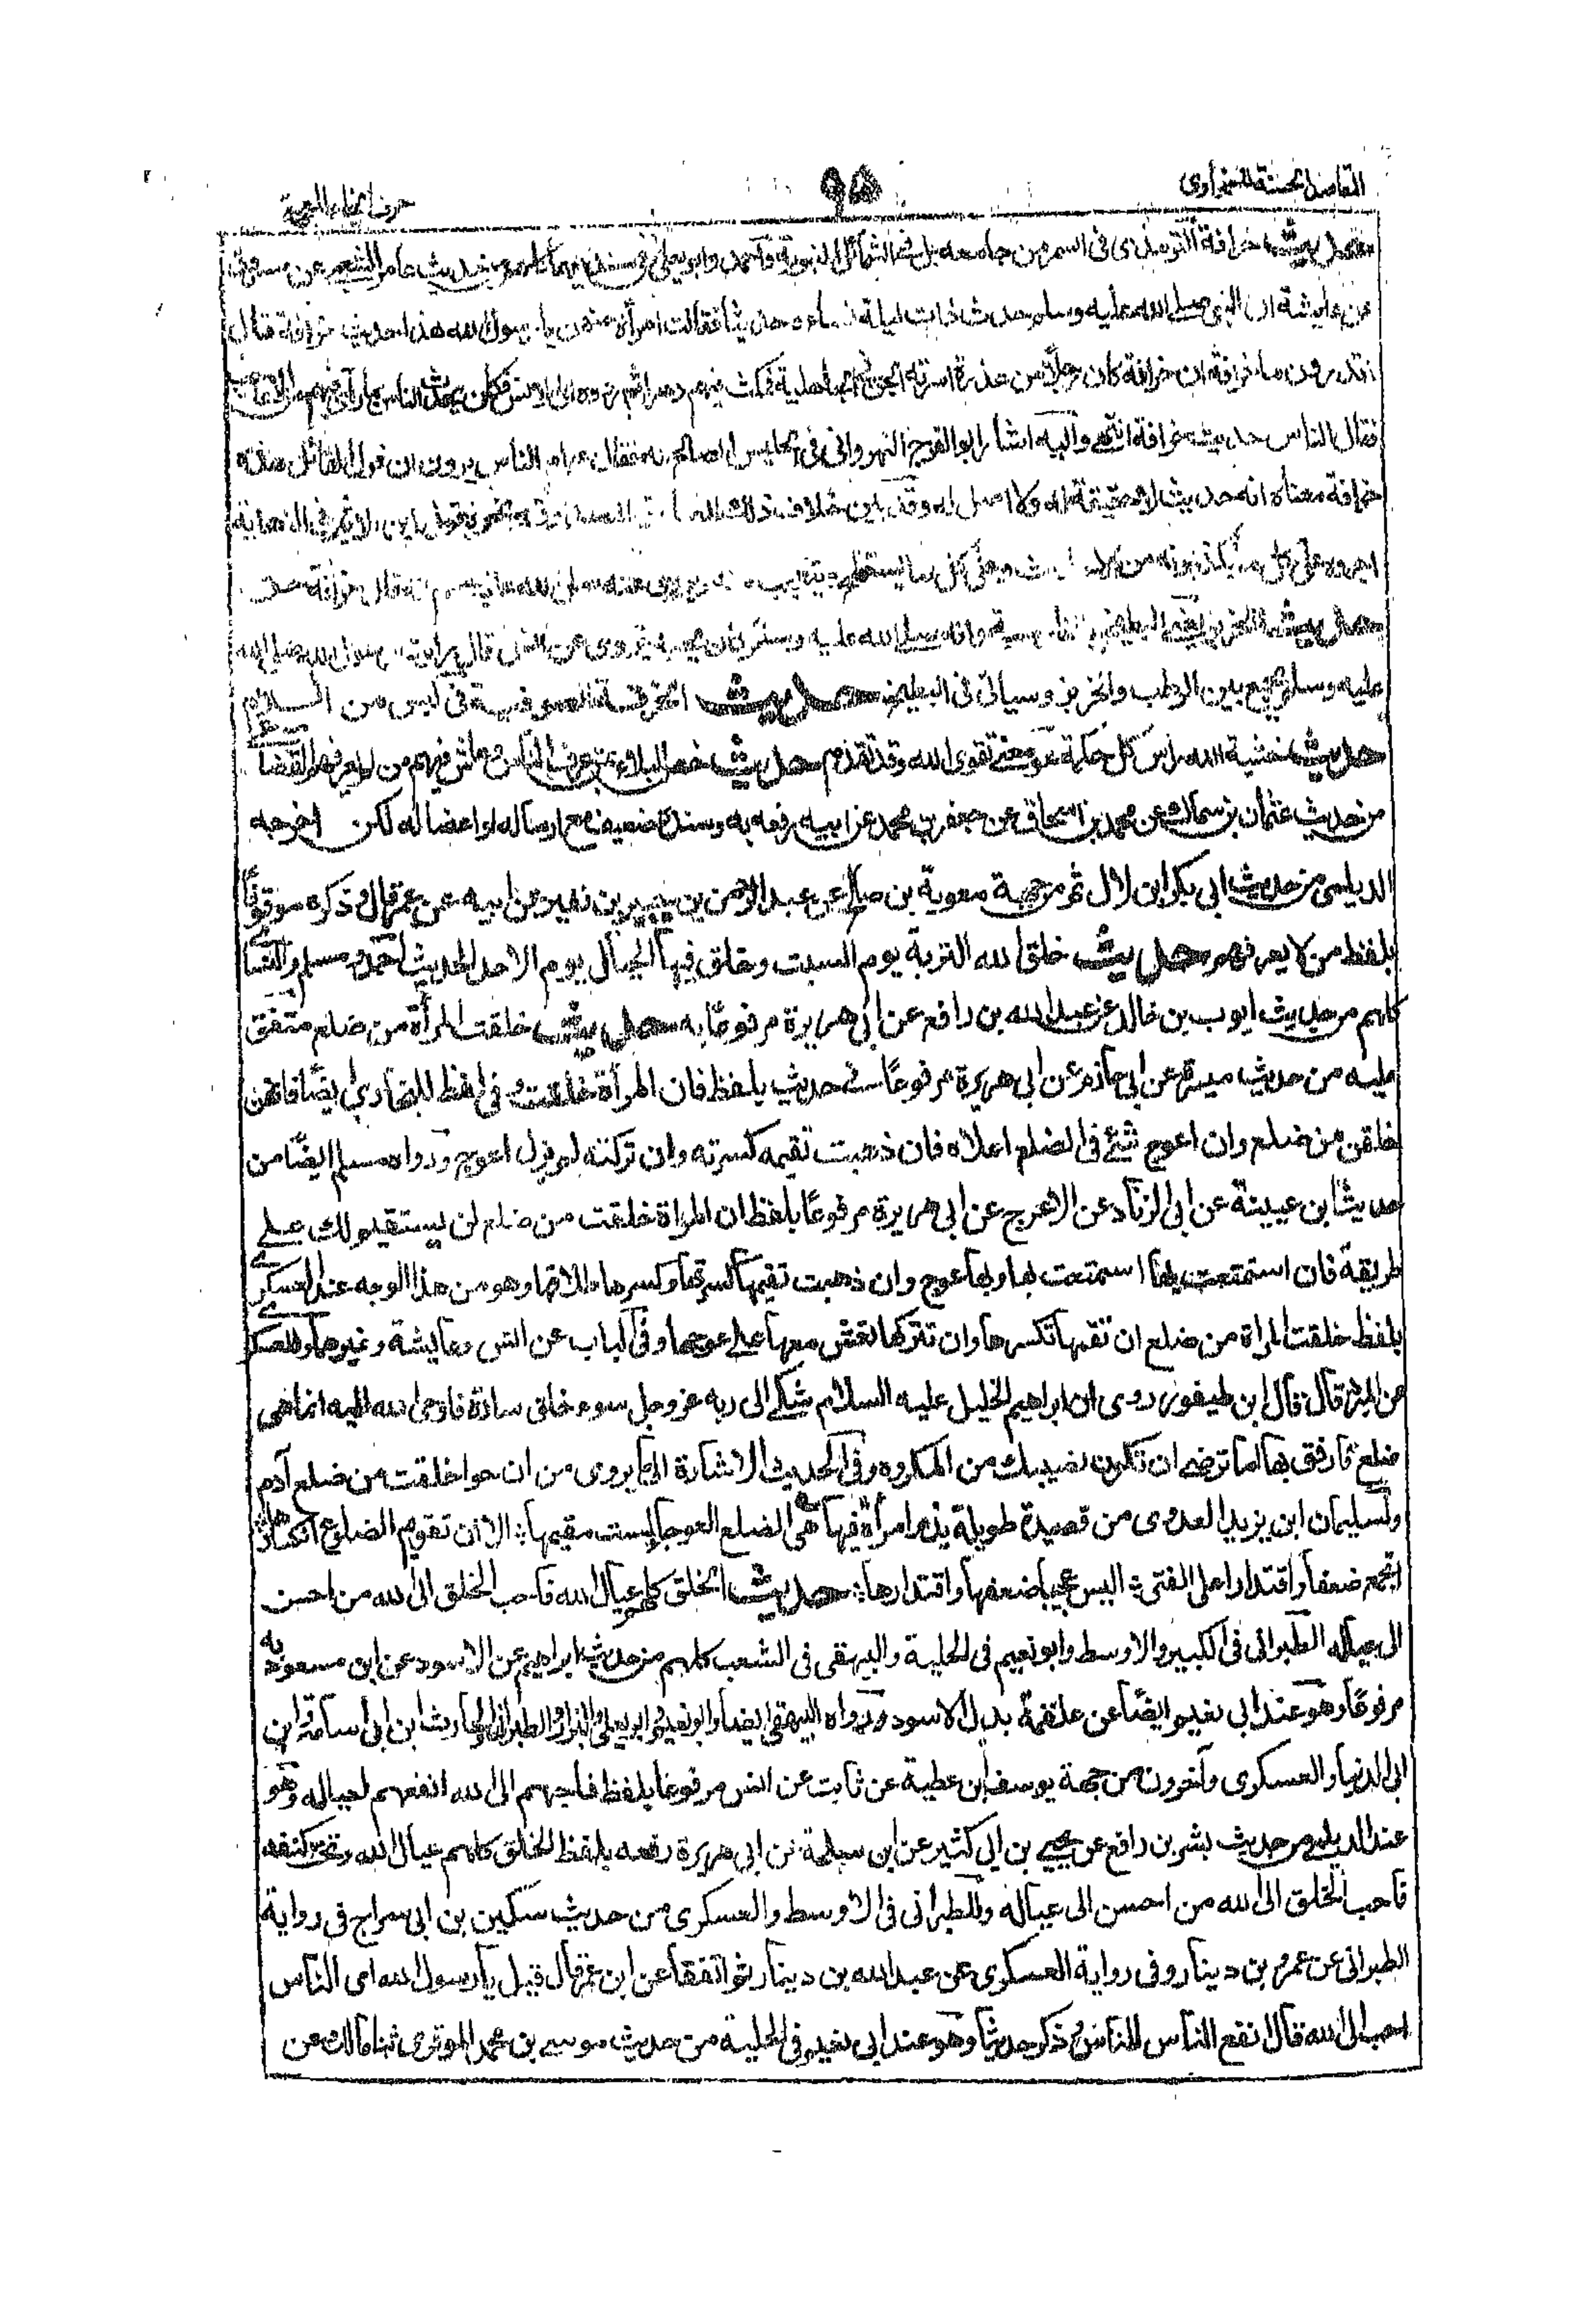 المقاصد الحسنة للسخاوى
٩٥
حرف الخاء المعجمة
حديث خرافة الترمذى فى اسمر من جامعه بل فى الشمائل النبوية واحمد وابو يعلى فى مسنديهما من حديث عامر الشعبى عن مسروق
عن عايشة ان النبى صلى الله عليه وسلم حدث ذات ليلة نساءه حديثا فقالت امرأة منهن يا رسول الله هذا حديث خرافة قال
اتدرون ما خرافة ان خرافة كان رجلا من عذرة اسرته الجن فى الجاهلية فمكث فيهم دهرا ثم ردوه الى الانس فكان يحدث الناس بما رآى فيهم من الاعاجيب
فقال الناس حديث خرافة انتهى واليه اشار ابو الفرج النهروانى فى الجليس الصالح له فقال عوام الناس يرون ان قول القائل هذه
خرافة معناه انه حديث لا حقيقة له ولا اصل له وقد بين خلاف ذلك ابن الاثير فى النهاية
اجروه على كل ما يكذبونه من الاحاديث وعلى كل ما يستملح ويتعجب منه
حديث الخربز
عليه وسلم يجمع بين الرطب والخربز وسياتى فى البطيخ حديث الخرقة الصوفية فى لبس من السلام
حديث خشية الله راس كل حكمة هو بمعنى تقوى الله وقد تقدم حديث خص البلاء بمن عرف الناس وعاش فيهم من لم يعرفهم القضاعى
من حديث عثمان بن سماك عن محمد بن اسحاق عن جعفر بن محمد عن ابيه رفعه به وسنده ضعيف مع ارساله او اعضاله لكن اخرجه
الديلمى من حديث ابى بكر ابن لال ثم من جهة معوية بن صالح عن عبد الرحمن بن جبير بن نفير عن ابيه عن عمر قال وذكره موقوفًا
بلفظ من لا يعرفهم حديث خلق الله التربة يوم السبت وخلق فيها الجبال يوم الاحد الحديث احمد ومسلم والنسائى
كلهم من حديث ايوب بن خالد عن عبد الله بن رافع عن ابى هريرة مرفوعًا به حديث خلقت المرأة من ضلع متفق
عليه من حديث ميسرة عن ابى حازم عن ابى هريرة مرفوعًا فى حديث بلفظ فان المرأة خلقت وفى لفظ للبخارى ايضًا فانهن
خلقن من ضلع وان اعوج شئ فى الضلع اعلاه فان ذهبت تقيمه كسرته وان تركته لم يزل اعوج ورواه مسلم ايضًا من
حديث ابن عيينة عن ابى الزناد عن الاعرج عن ابى هريرة مرفوعًا بلفظ ان المراة خلقت من ضلع لن يستقيم لك على
طريقة فان استمتعت بها استمتعت بها وبها عوج وان ذهبت تقيمها كسرتها وكسرها طلاقها وهو من هذا الوجه عند العسكرى
بلفظ خلقت المراة من ضلع ان تقمها تكسرها وان تتركها تعش معها على عوجها وفى الباب عن انس وعايشة وغيرهما وللعسكر
عن المبرد قال قال ابن طيفور روى ان ابراهيم الخليل عليه السلام شكى الى ربه عز وجل سوء خلق سارة فاوحى الله اليه انما هى
ضلع فارفق بها اما ترضى ان تكون نصيبك من المكروه وفى الحديث الاشارة الى ما يروى من ان حوا خلقت من ضلع آدم
ولسليمان ابن يزيد العدوى من قصيدة طويلة يذم امرأة فيها هى الضلع العوجا لست مقيمها ؛ الا ان تقويم الضلوع انكسارها
اتجمع ضعفا واقتدارا على الفتى ؛ اليس عجيبا ضعفها واقتدارها ؛ حديث الخلق كلهم عيال الله فاحب الخلق الى الله من احسن
الى عياله الطبرانى فى الكبير والاوسط وابو نعيم فى الحلية والبيهقى فى الشعب كلهم من حديث ابراهيم عن الاسود عن ابن مسعود به
مرفوعًا وهو عند ابى نعيم ايضًا عن علقمة بدل الاسود ورواه البيهقى ايضا وابو نعيم وابو يعلى والبزار والطبرانى والحارث ابن ابى اسامة وابن
ابى الدنيا والعسكرى وآخرون من جهة يوسف ابن عطية عن ثابت عن انس مرفوعا بلفظ فاحبهم الى الله انفعهم لعياله وهو
عند الديلمى من حديث بشر بن رافع عن يحيى بن ابى كثير عن ابن سلمة عن ابى هريرة رفعه بلفظ الخلق كلهم عيال الله وتحت كنفه
فاحب الخلق الى الله من احسن الى عياله وللطبرانى فى الاوسط والعسكرى من حديث سكين بن ابى سراج فى رواية
الطبرانى عن عمرو بن دينار وفى رواية العسكرى عن عبد الله بن دينار ثم اتفقا عن ابن عمر قال قيل يا رسول الله اى الناس
احب الى الله قال انفع الناس للناس وذكر حديثا وهو عند ابى نعيم فى الحلية من حديث موسى بن محمد الموقرى ثنا مالك عن